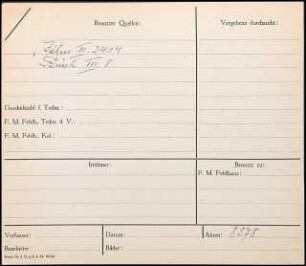 Benutzte Quellen:
Vergebens durchsucht:
III. 2414
VII. 8
Geschichtsbl. f. Techn.:
F. M. Feldh., Techn. d. V.:
F. M. Feldh., Kal.:
Irrtümer:
Benutzt zu:
F. M. Feldhaus:
Verfasser:
Datum:
Akten: 8978
Bearbeiter:
Bilder: